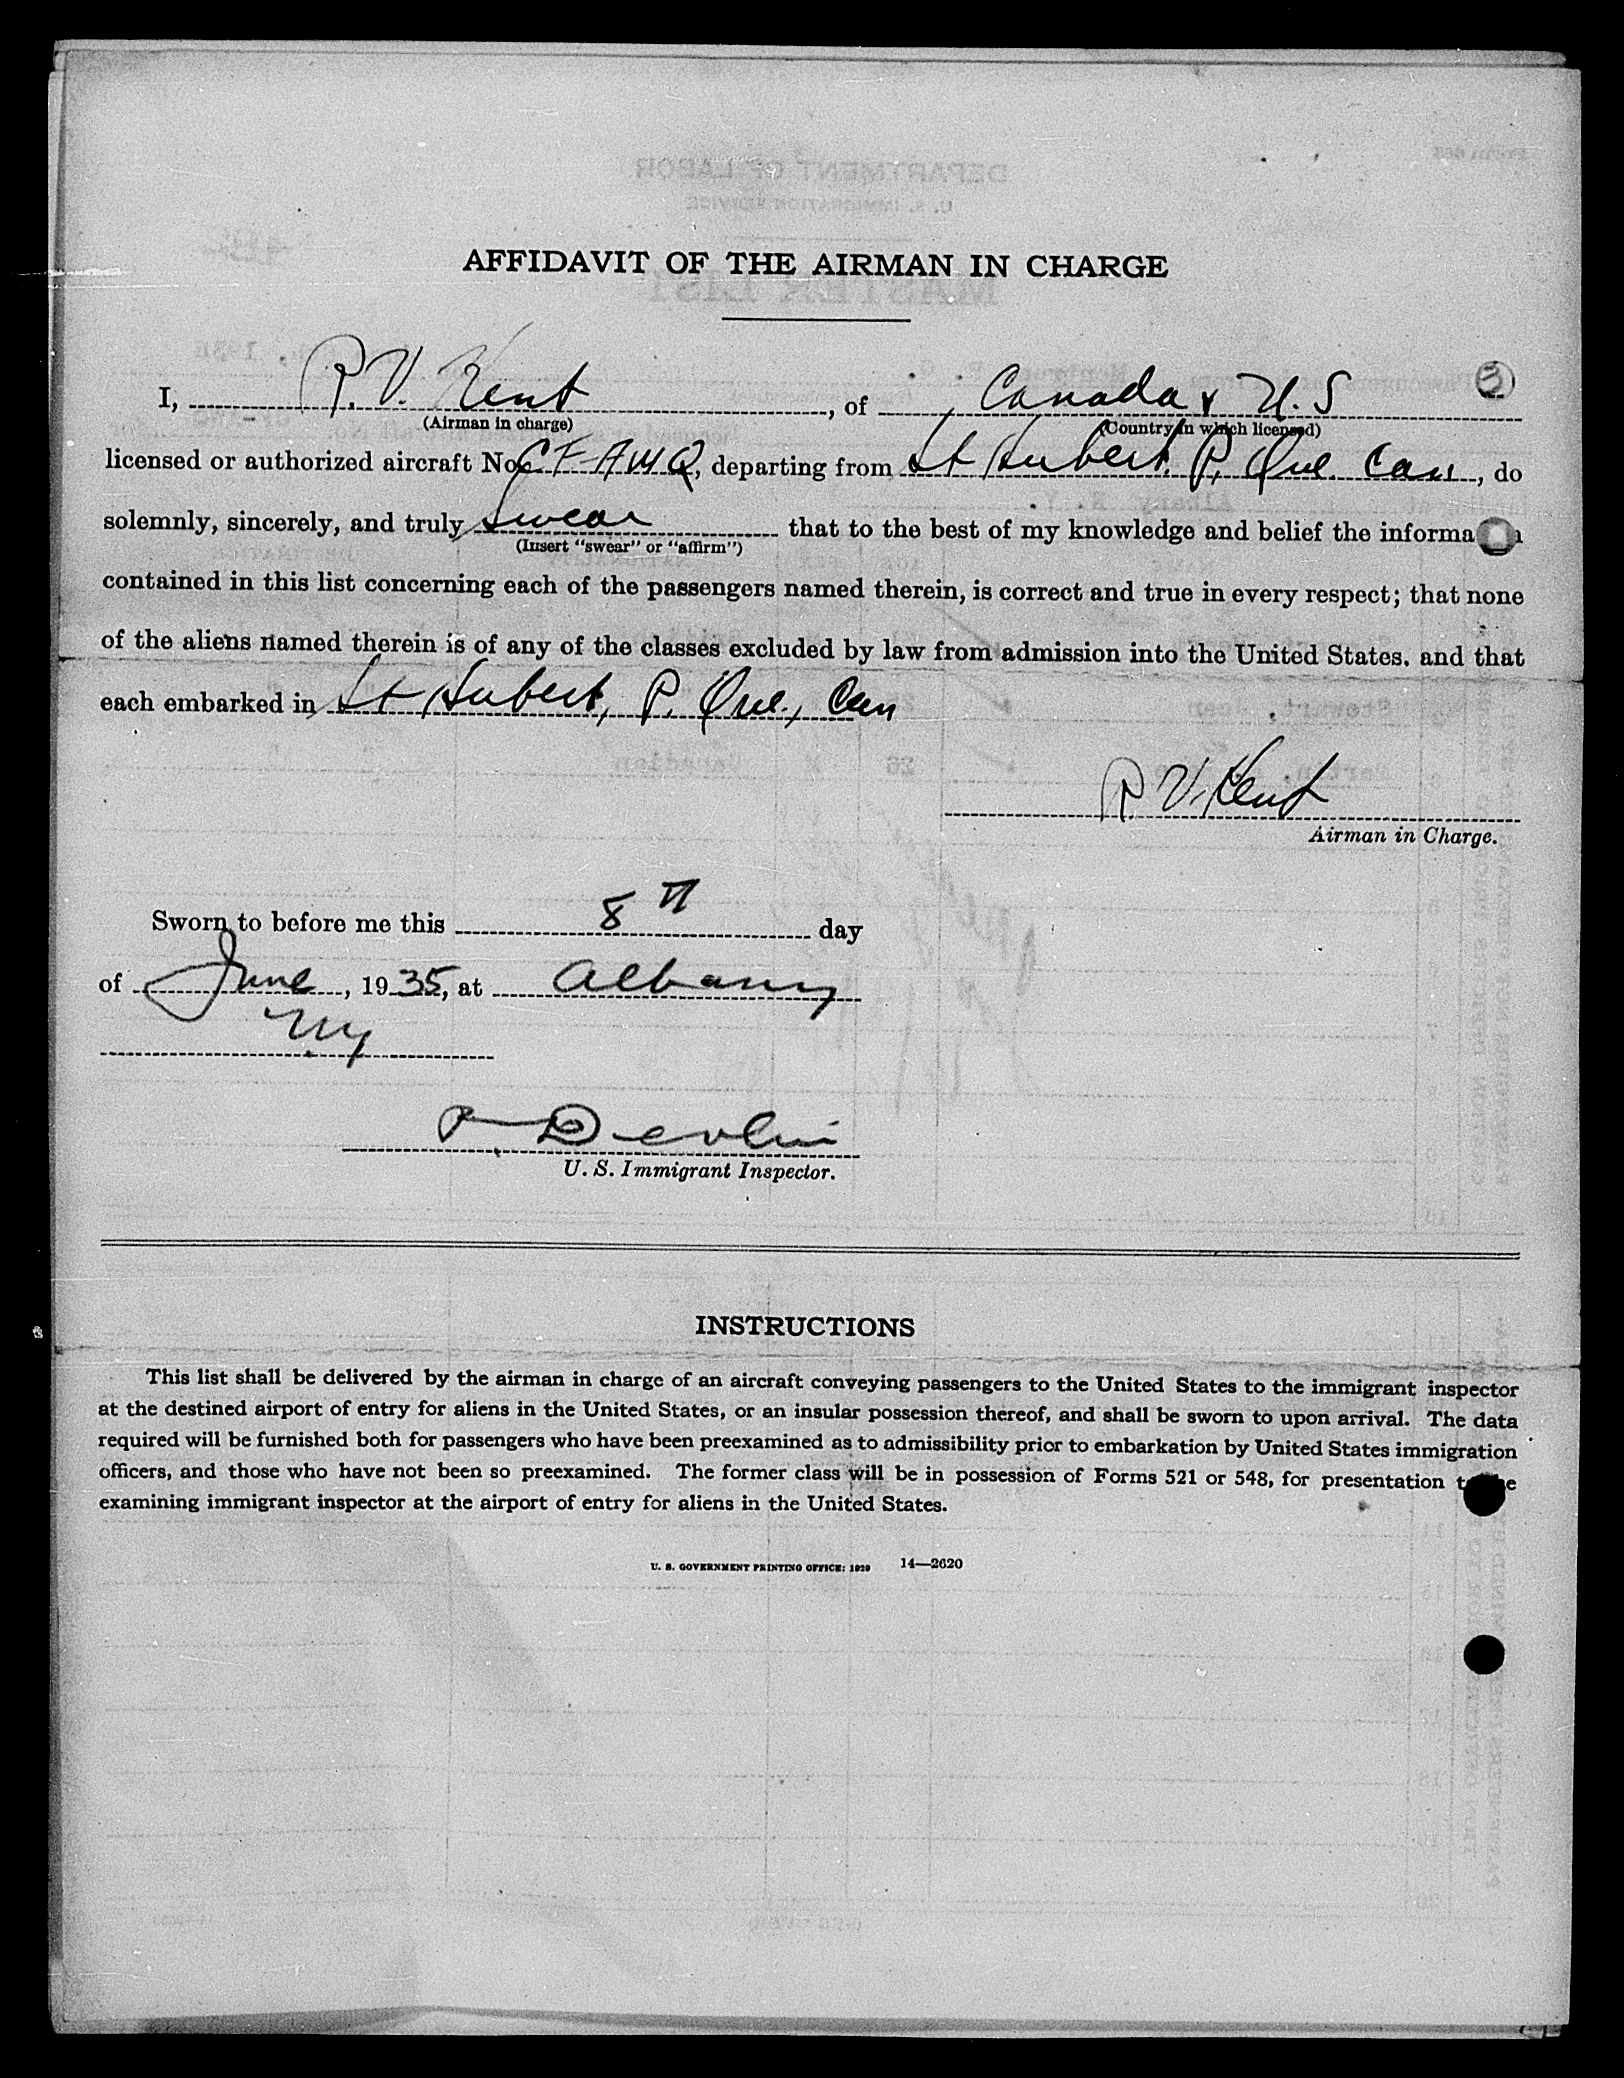 AFFIDAVIT OF THE AIRMAN IN CHARGE
I, P. V. Kent, of Canada & U.S
(Airman in charge) (Country in which licensed)
3
licensed or authorized aircraft No. CF-AMQ, departing from St Hubert, P. Que. Can, do
solemnly, sincerely, and truly Swear that to the best of my knowledge and belief the informa
(Insert "swear" or "affirm")
contained in this list concerning each of the passengers named therein, is correct and true in every respect; that none
of the aliens named therein is of any of the classes excluded by law from admission into the United States. and that
each embarked in St Hubert, P. Que., Can
P. V. Kent
Airman in Charge.
Sworn to before me this 8th day
of June, 1935, at Albany
NY
Devlin
U. S. Immigrant Inspector.
INSTRUCTIONS
This list shall be delivered by the airman in charge of an aircraft conveying passengers to the United States to the immigrant inspector
at the destined airport of entry for aliens in the United States, or an insular possession thereof, and shall be sworn to upon arrival. The data
required will be furnished both for passengers who have been preexamined as to admissibility prior to embarkation by United States immigration
officers, and those who have not been so preexamined. The former class will be in possession of Forms 521 or 548, for presentation
examining immigrant inspector at the airport of entry for aliens in the United States.
U. S. GOVERNMENT PRINTING OFFICE: 1929 14—2620